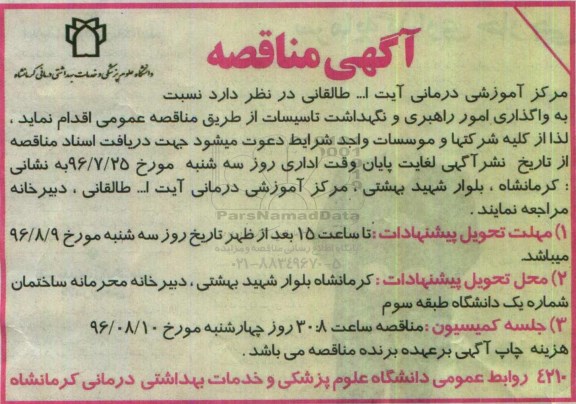 آگهی مناقصه
دانشگاه علوم پزشکی و خدمات بهداشتی درمانی کرمانشاه
مرکز آموزشی درمانی آیت ا... طالقانی در نظر دارد نسبت
به واگذاری امور راهبری و نگهداشت تاسیسات از طریق مناقصه عمومی اقدام نماید ،
لذا از کلیه شرکتها و موسسات واجد شرایط دعوت میشود جهت دریافت اسناد مناقصه
از تاریخ نشرآگهی لغایت پایان وقت اداری روز سه شنبه مورخ ۹۶/۷/۲۵به نشانی
: کرمانشاه ، بلوار شهید بهشتی . مرکز آموزشی درمانی آیت ا... طالقانی ، دبیرخانه
مراجعه نمایند .
ParsNamadData
۱) مهلت تحویل پیشنهادات : تا ساعت ۱۵ بعد از ظهر تاریخ روز سه شنبه مورخ ۹۶/۸/۹
میباشد.
۰۲۱-۸۸۳۴۹۶۷۰-۵
۲) محل تحویل پیشنهادات : کرمانشاه بلوار شهید بهشتی ، دبیرخانه محرمانه ساختمان
شماره یک دانشگاه طبقه سوم
۳) جلسه کمیسیون : مناقصه ساعت ۳۰:۸ روز چهارشنبه مورخ ۹۶/۰۸/۱۰
هزینه چاپ آگهی برعهده برنده مناقصه می باشد .
۴۲۱۰ روابط عمومی دانشگاه علوم پزشکی و خدمات بهداشتی درمانی کرمانشاه